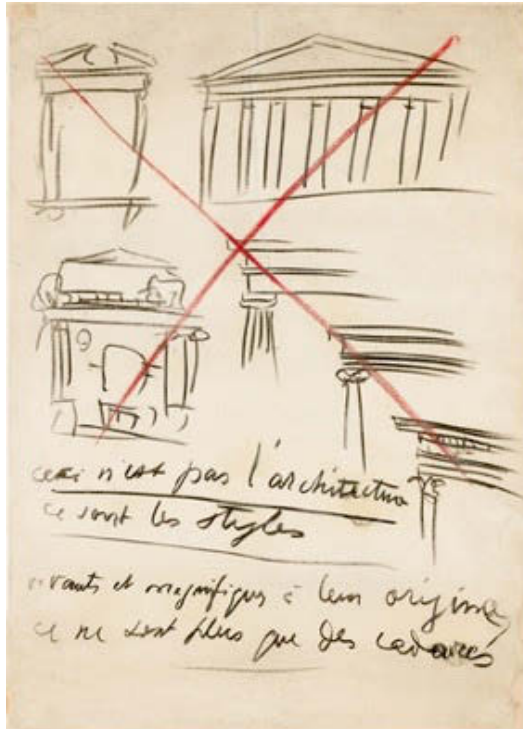 ceci n'est pas l'architecture
ce sont les styles
vivants et magnifiques à leur origine,
ce ne sont plus que des cadavres